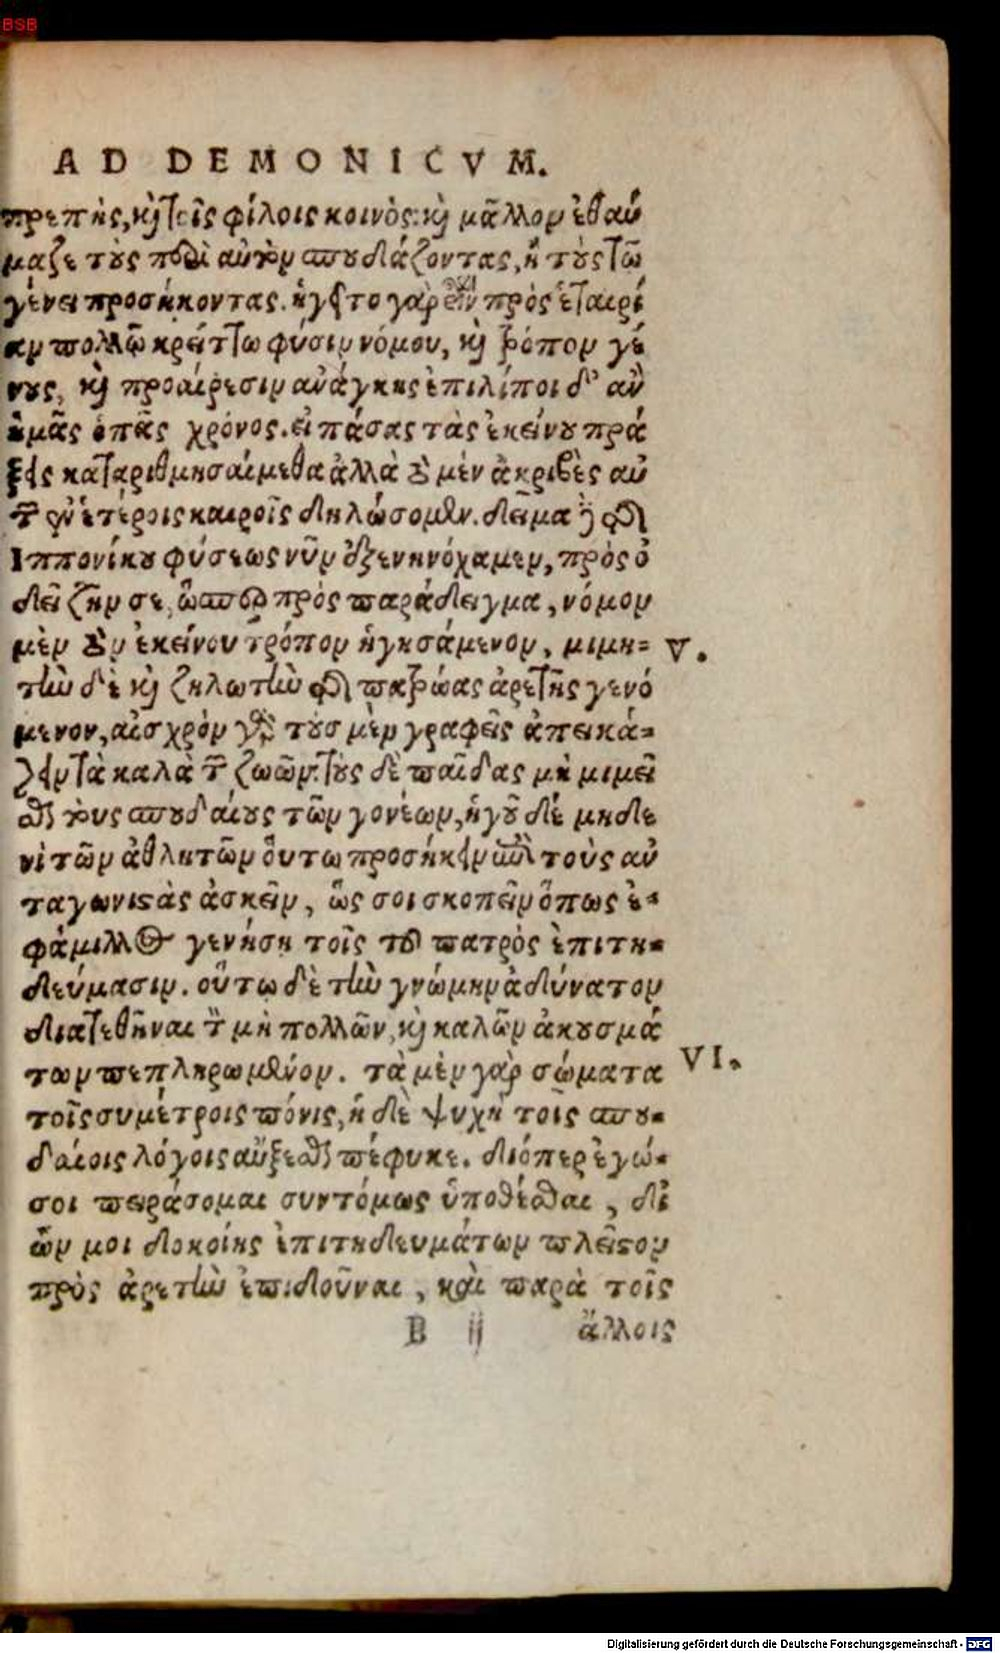 BSB
AD DEMONICVM.
πρεπὴς, καὶ τοῖς φίλοις κοινὸς: καὶ μᾶλλον ἐθαύ
μαζε τοὺς περὶ αὐτὸν σπουδάζοντας, ἢ τοὺς τῶ
γένει προσήκοντας. ἡγεῖτο γὰρ εἶναι πρὸς ἑταιρί
αν πολλῶ κρείττω φύσιν νόμου, καὶ τρόπον γέ
νους, καὶ προαίρεσιν ἀνάγκης ἐπιλίποι δ' ἂν
ἡμᾶς ὁ πᾶς χρόνος. εἰ πάσας τὰς ἐκείνου πρά
ξεις καταριθμησαίμεθα ἀλλὰ τὸ μὲν ἀκριβὲς αὐ
τῶν ἐν ἑτέροις καιροῖς δηλώσομεν. δεῖγμα δὲ τῆς
Ἱππονίκου φύσεως νῦν ἐξενηνόχαμεν, πρὸς ὃ
δεῖ ζῆν σε, ὥσπερ πρὸς παράδειγμα, νόμον
μὲν τὸν ἐκείνου τρόπον ἡγησάμενον, μιμη-
V.
τὴν δὲ καὶ ζηλωτὴν τῆς πατρώας ἀρετῆς γενό
μενον, αἰσχρὸν γὰρ τοὺς μὲν γραφεῖς ἀπεικά-
ζειν τὰ καλὰ τῶν ζώων. τοὺς δὲ παῖδας μὴ μιμεῖ
σθαι τοὺς σπουδαίους τῶν γονέων, ἡγοῦ δὲ μηδε
νὶ τῶν ἀθλητῶν οὕτω προσήκειν ἐπὶ τοὺς ἀν
ταγωνιστὰς ἀσκεῖν, ὥς σοι σκοπεῖν ὅπως ἐ-
φάμιλλος γενήση τοῖς τοῦ πατρὸς ἐπιτη-
δεύμασιν. οὕτω δὲ τὴν γνώμην ἀδύνατον
διατεθῆναι τὸν μὴ πολλῶν, καὶ καλῶν ἀκουσμά
των πεπληρωμένον. τὰ μὲν γὰρ σώματα
VI.
τοῖς συμέτροις πόνις, ἡ δὲ ψυχὴ τοῖς σπου-
δαίοις λόγοις αὔξεσθαι πέφυκε. διόπερ ἐγώ-
σοι πειράσομαι συντόμως ὑποθέσθαι, δι'
ὧν μοι δοκοίης ἐπιτηδευμάτων πλεῖστον
πρὸς ἀρετὴν ἐπιδοῦναι, καὶ παρὰ τοῖς
B ij ἄλλοις
Digitalisierung gefördert durch die Deutsche Forschungsgemeinschaft - DFG